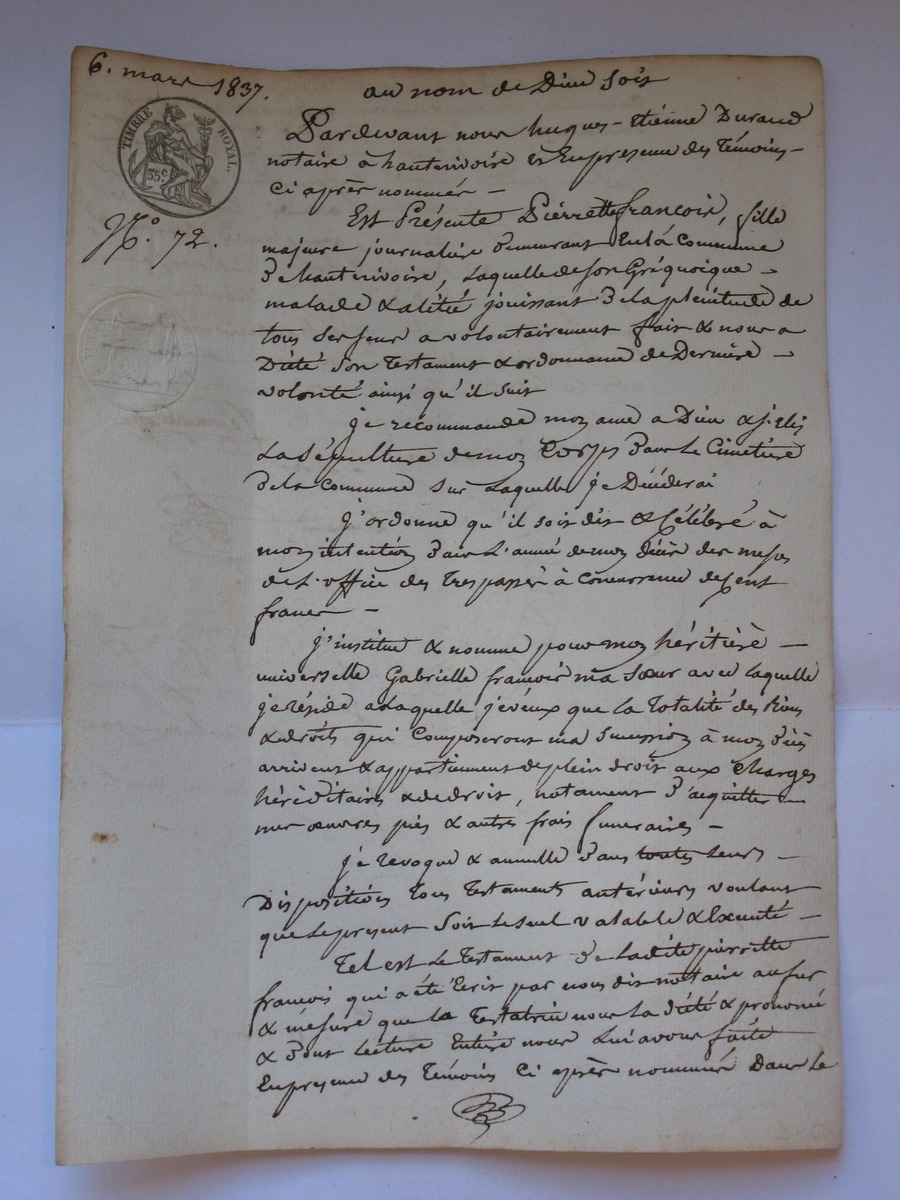 6. mars 1837.
au nom de Dieu soit
TIMBRE ROYAL.
35 c.
N.o 72.
Pardevant nous hugues-Etiénne Durand
notaire à hauterivoire et En presence des Témoins
ci après nommés
Est Présente Pierrette francois, fille
majeure journalière demeurant En la Commune
de hauterivoire, Laquelle de son Gré quoique
malade & alitée jouissant de la plénitude de
tous ses sens a volontairement fait & nous a
Dicté son Testament & ordonnance de Dernière
volonté ainsi qu'il suit
je recommande mon ame a Dieu & j'elis
La Sépulture de mon Corps dans Le Cimétière
de la Commune sur Laquelle je Décéderai
j'ordonne qu'il soit dit & Célébré à
mon intention dans L'année de mon décès des messes
de L'office des Trespassés à Concurrence de Cent
francs
j'institue & nomme pour mon héritière
universelle Gabrielle francois ma sœur avec laquelle
je réside a Laquelle je veux que la Totalité des Biens
& droits qui Composeront ma Succession à mon décès
arrivent & appartiennent de plein droit aux Charges
héréditaires & de droit, notament d'acquitter
mes œuvres pies & autres frais funeraires
je revoque & annulle dans toutes Leurs
Dispositions Tous Testaments antérieurs voulant
que Le present Soit Le seul valable & Exécuté
Tel est Le Testament de Ladite pierrette
francois qui a été Ecrit par nous dit notaire au fur
& mésure que La Testatrice nous L'a dicté & prononcé
& dont Lécture Entière nous Lui avons faite
En presence des Témoins Ci après nommés Dans Le